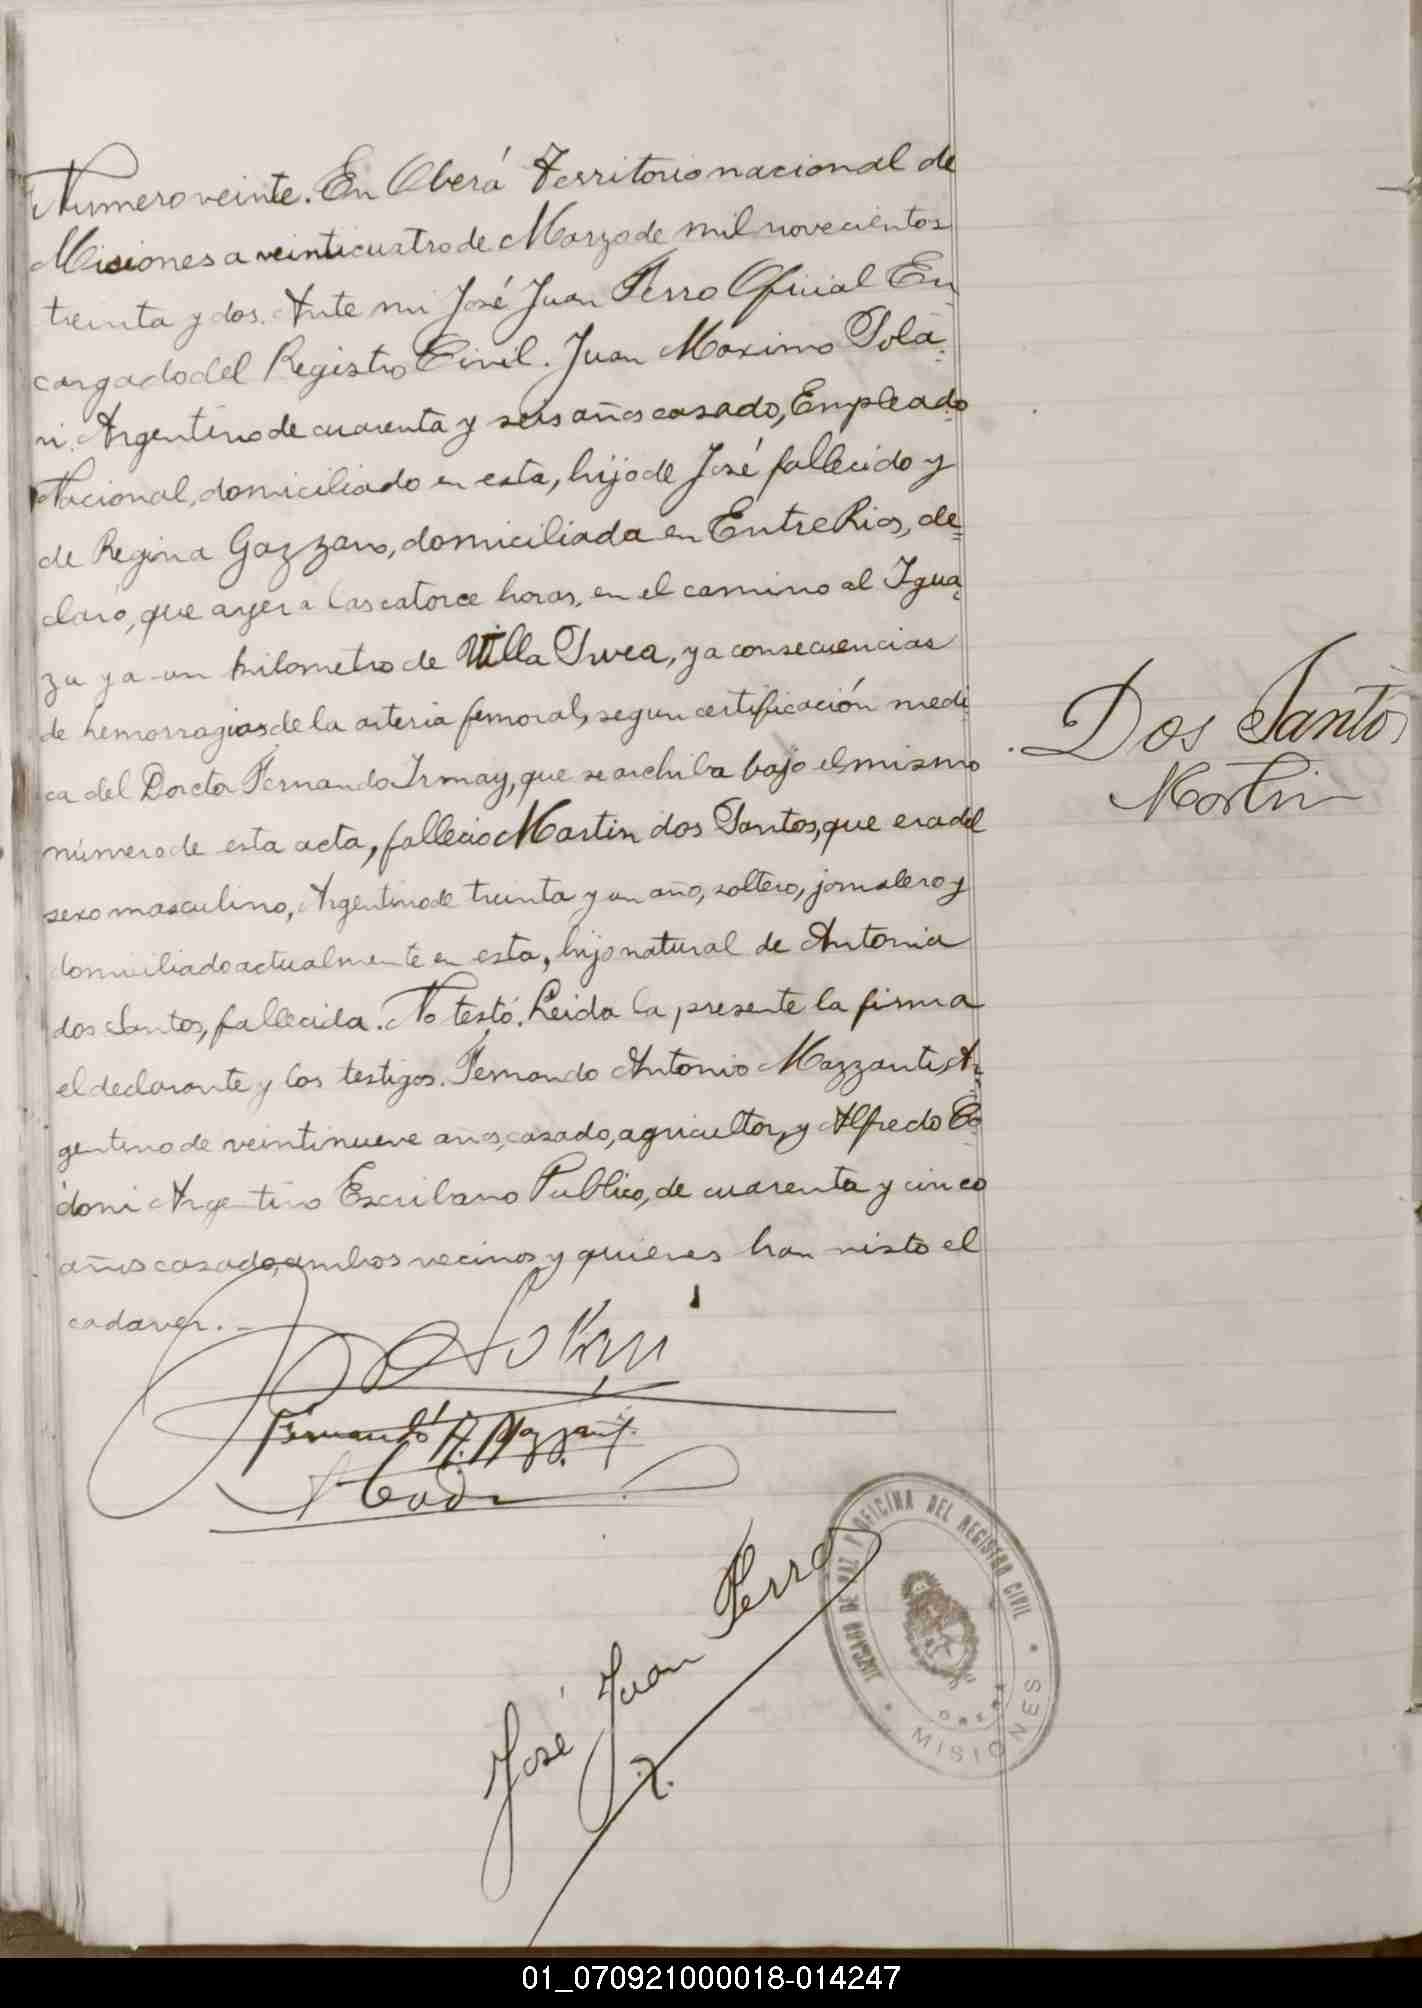 Numero veinte. En Oberá Territorio nacional de
Misiones a veinticuatro de Marzo de mil novecientos
treinta y dos. Ante mi José Juan Ferro Oficial En
cargado del Registro Civil. Juan Maximo Sola
ri. Argentino de cuarenta y seis años casado, Empleado
Nacional, domiciliado en esta, hijo de José fallecido y
de Regina Gazzano, domiciliada en Entre Rios, de=
claró, que ayer a las catorce horas, en el camino al Igua
zu y a un kilometro de Villa Svea, y a consecuencias
de hemorragias de la arteria femoral, segun certificación medi
ca del Doctor Fernando Irmay, que se archiba bajo el mismo
número de esta acta, fallecio Martin dos Santos, que era del
sexo masculino, Argentino de treinta y un año, soltero, jornalero y
domiciliado actualmente en esta, hijo natural de Antonia
dos Santos, fallecida. No testó. Leida la presente la firma
el declarante y los testigos. Fernando Antonio Mazzanti, Ar
gentino de veintinueve años, casado, agricultor, y Alfredo Co
doni Argentino Escribano Publico, de cuarenta y cinco
años casado, ambos vecinos y quienes han visto el
cadaver. -
Dos Santos
Martin
Fernando A. Mazzanti
José Juan Ferro
JUZGADO DE PAZ Y OFICINA DEL REGISTRO CIVIL
OBERA
• MISIONES •
01_070921000018-014247